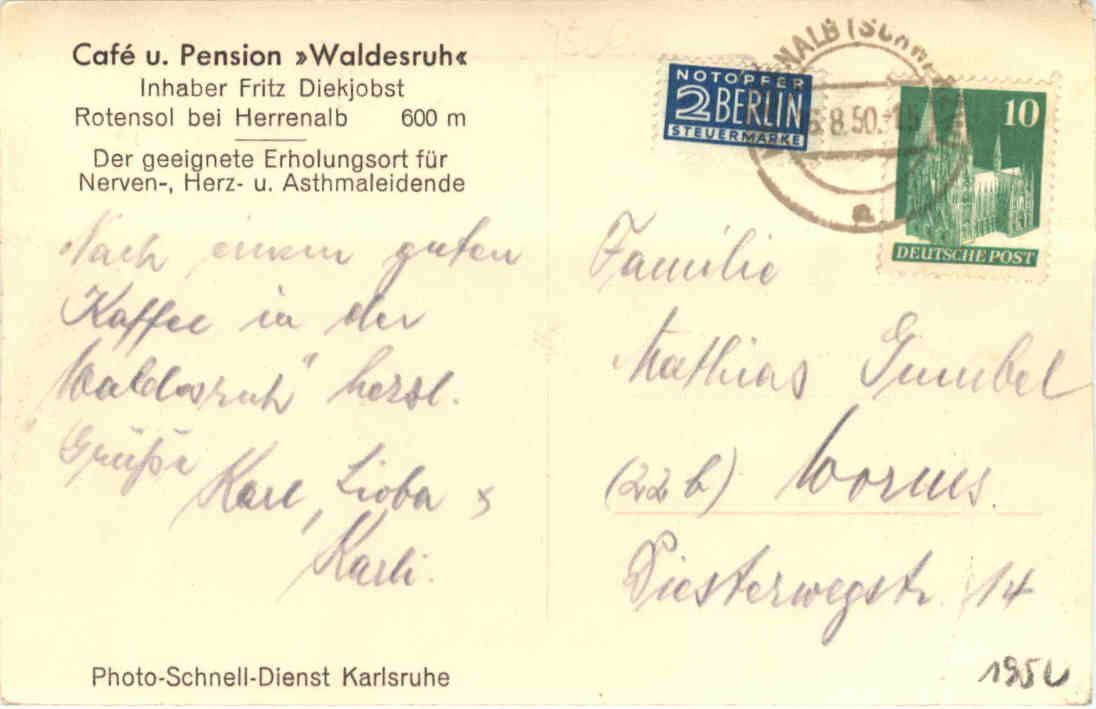 Café u. Pension »Waldesruh«
Inhaber Fritz Diekjobst
Rotensol bei Herrenalb 600 m
Der geeignete Erholungsort für
Nerven-, Herz- u. Asthmaleidende
Nach einem guten
Kaffee in der
Waldesruh" herzl.
Grüße
Karl, Lioba &
Karli.
Photo-Schnell-Dienst Karlsruhe
NOTOPFER
2 BERLIN
STEUERMARKE
8.50.
a
10
DEUTSCHE POST
Familie
Mathias Gumbel
(22b) Worms.
Diesterwegstr. 14